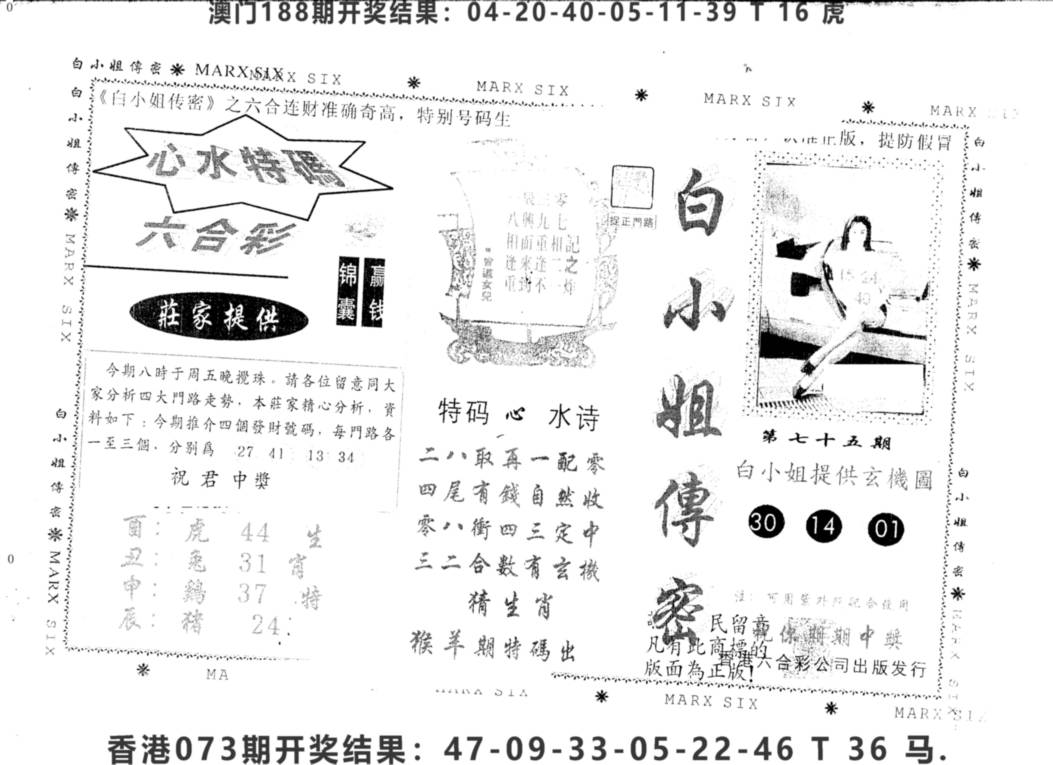 澳门188期开奖结果：04-20-40-05-11-39 T 16 虎
白小姐傳密 ✱ MARX SIX
MARX SIX
✱
MARX SIX
✱
MARX SIX
✱
MARX
《白小姐传密》之六合连财准确奇高，特别号码生
正版，提防假冒
心水特碼
六合彩
锦囊
赢钱
莊家提供
今期八時于周五晚攪珠。請各位留意同大
家分析四大門路走勢，本莊家精心分析，資
料如下：今期推介四個發財號碼，每門路各
一至三個，分别爲 27 41 13 34
祝君中獎
酉：虎 44 生
丑：兔 31 肖
申：鷄 37 特
辰：豬 24
零
八興九七
相面重相記
逢來逢二之
重封不一炸
捉正門路
特码 心 水诗
二八取再一配零
四尾有錢自然收
零八衝四三定中
三二合數有玄機
猜生肖
猴羊期特碼出
白小姐傳密
15 24
40
第七十五期
白小姐提供玄機圖
30 14 01
注：可用紫外灯配合使用
民留意
保期期中獎
凡有此商標的
香港六合彩公司出版发行
版面為正版!
白小姐傳密 ✱ MARX SIX
白小姐傳密 ✱ MARX SIX
白小姐傳密 ✱ MARX SIX
白小姐傳密 ✱
✱
MA
✱
MARX SIX
✱
MARX SIX
香港073期开奖结果：47-09-33-05-22-46 T 36 马.